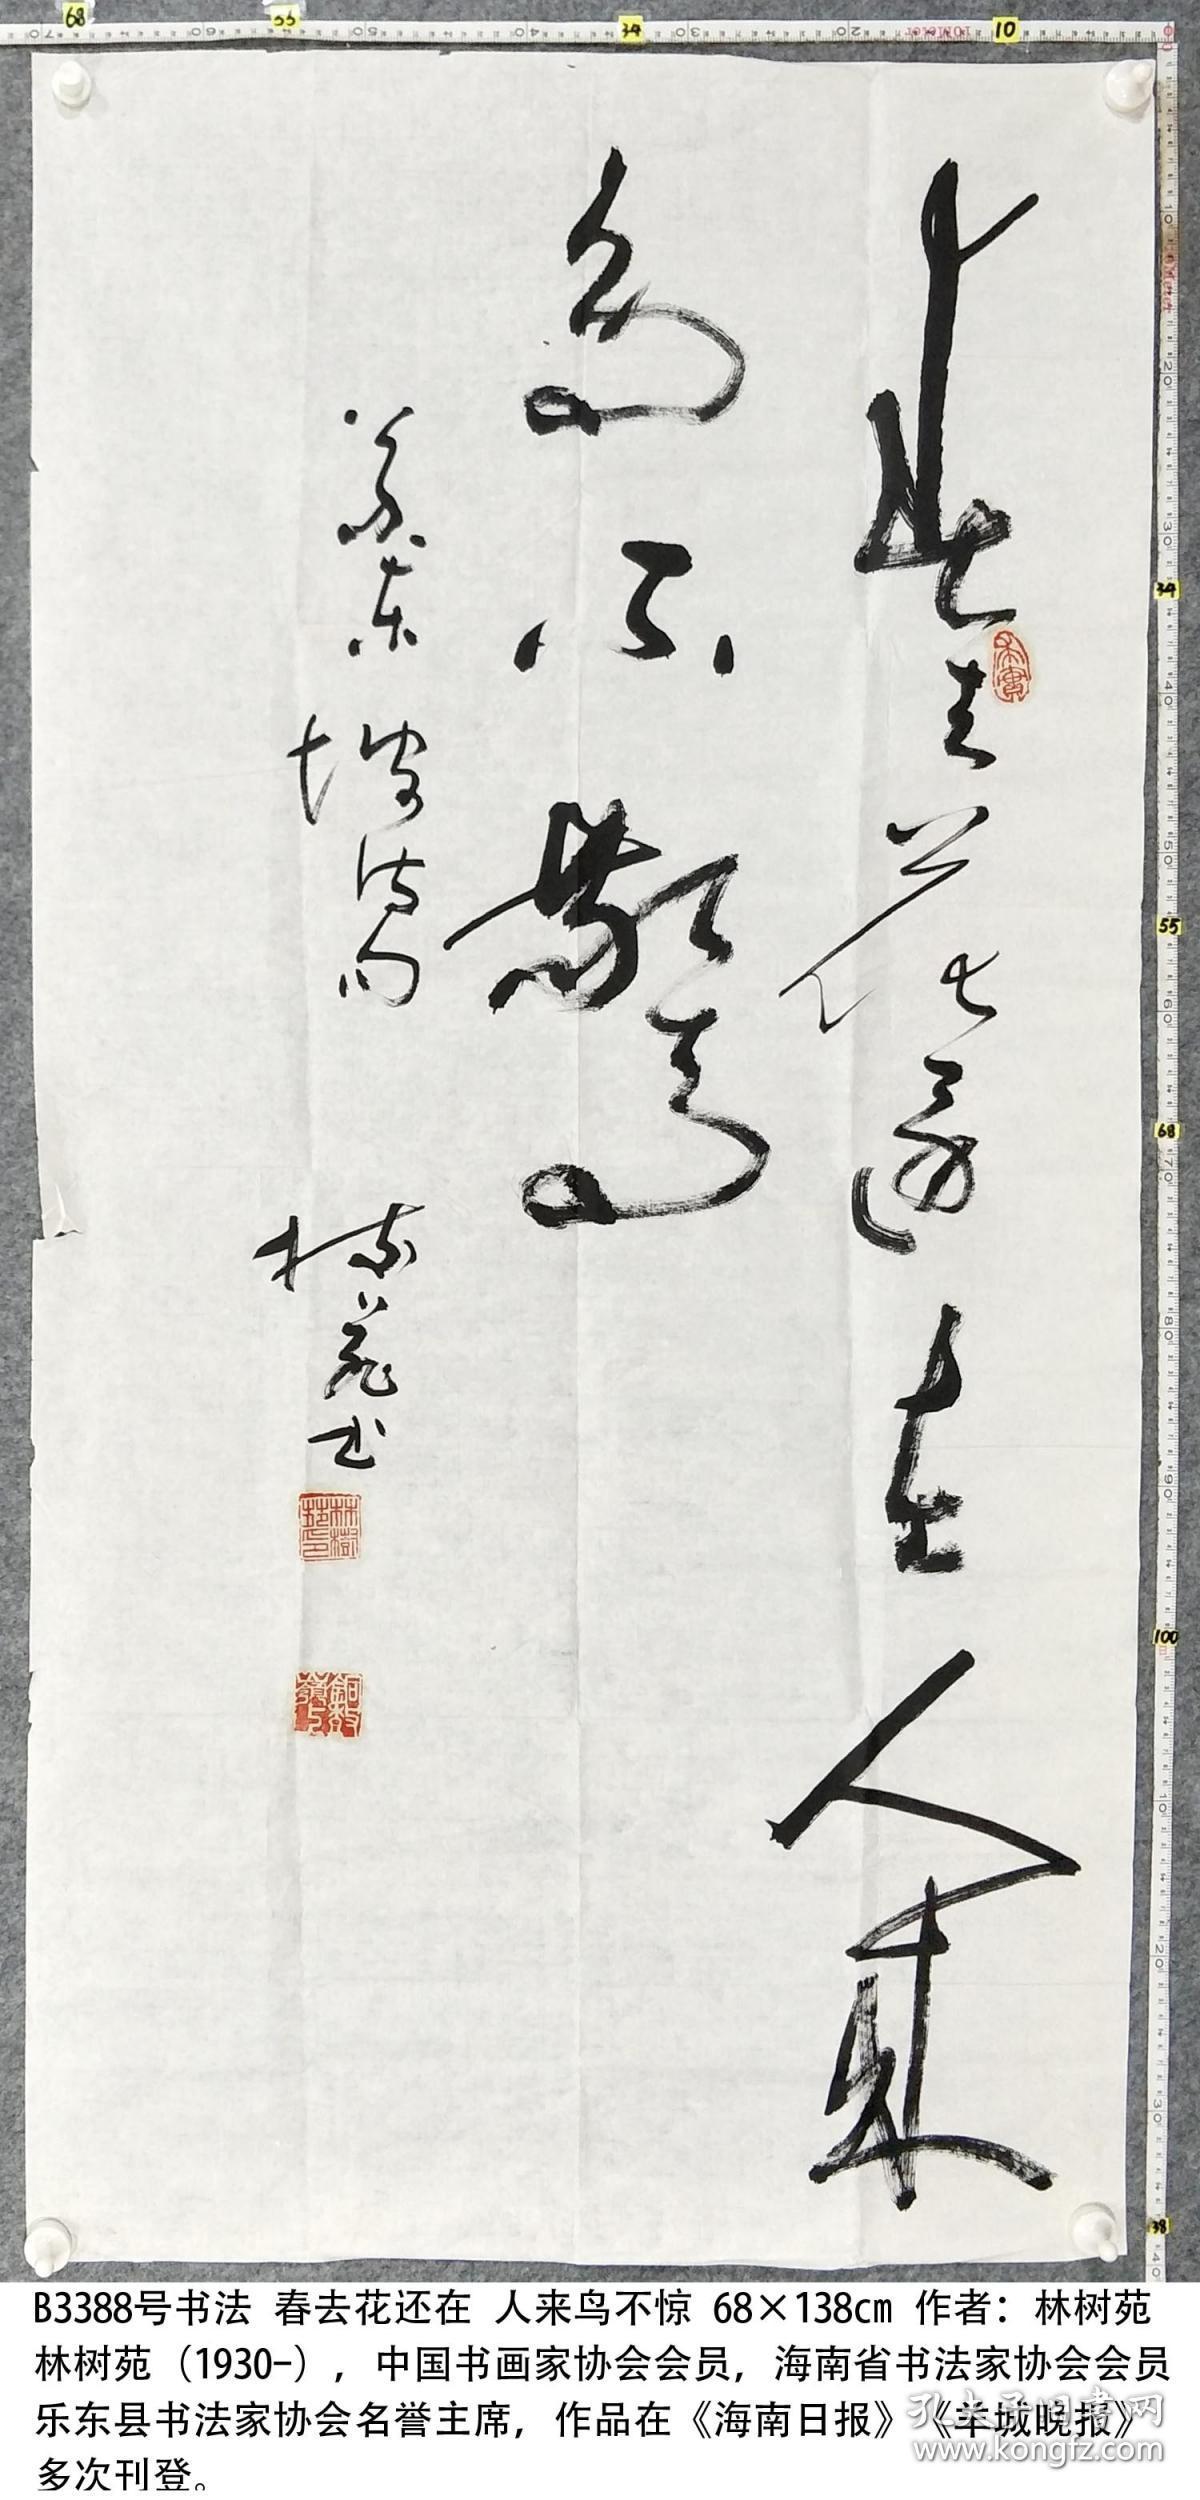 春去花還在人來
鳥不驚
蘇東坡詩句
樹苑书
林樹苑印
B3388号书法 春去花还在 人来鸟不惊 68×138cm 作者：林树苑
林树苑（1930-），中国书画家协会会员，海南省书法家协会会员
乐东县书法家协会名誉主席，作品在《海南日报》《羊城晚报》
多次刊登。
孔夫子旧书网
www.kongfz.com